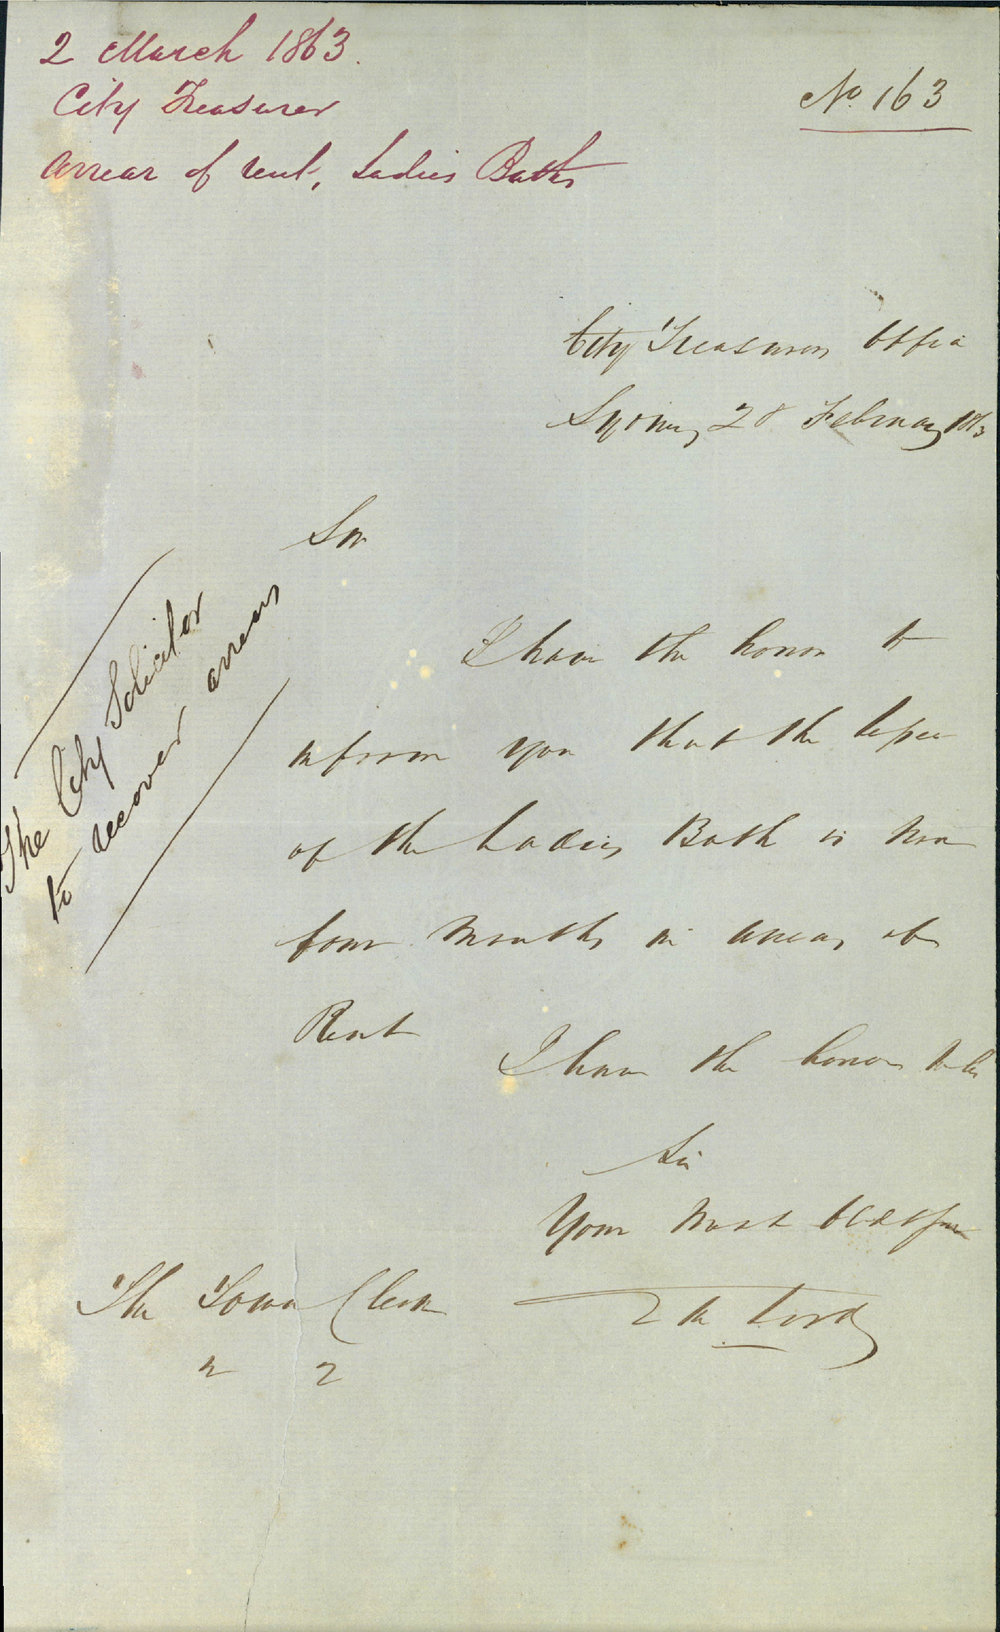 2 March 1863.
City Treasurer
Arrear of rent, Ladies Baths
No. 163
City Treasurers Office
Sydney 28 February 1863
Sir
I have the honor to
inform you that the lessee
of the Ladies Bath is now
four Months in arrears of
Rent
I have the honor to be
Sir
Your Most Obdt
The Town Clerk
The City Solicitor
to recover arrears